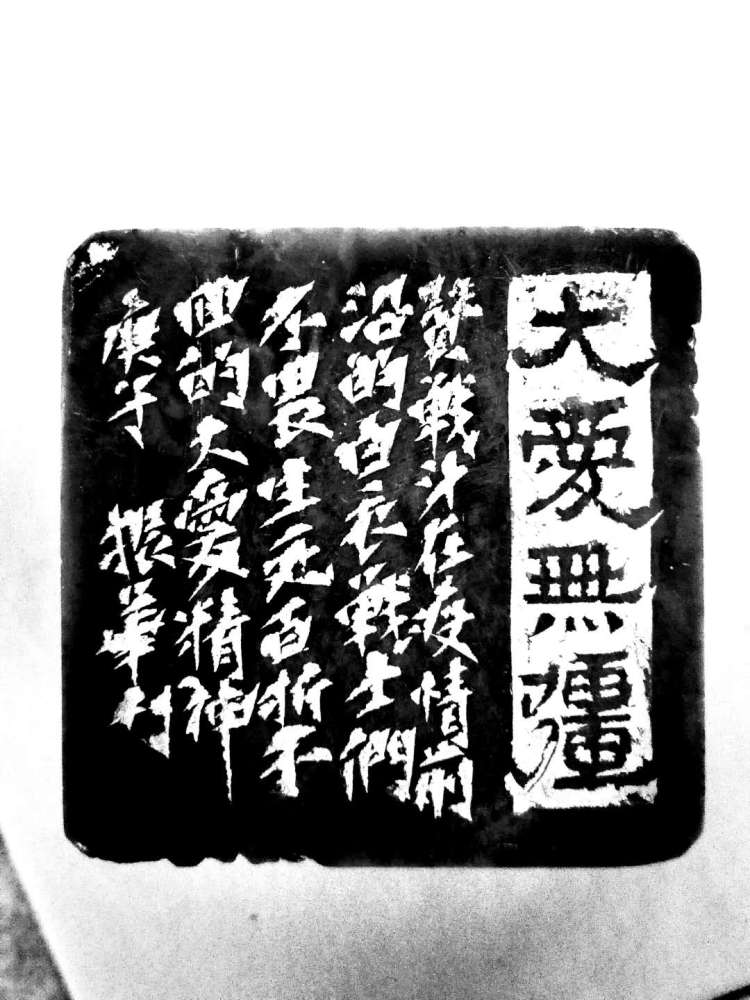 大愛無疆
贊戰斗在疫情前
沿的白衣戰士們
不畏生死百折不
回的大愛精神
庚子 振華刊